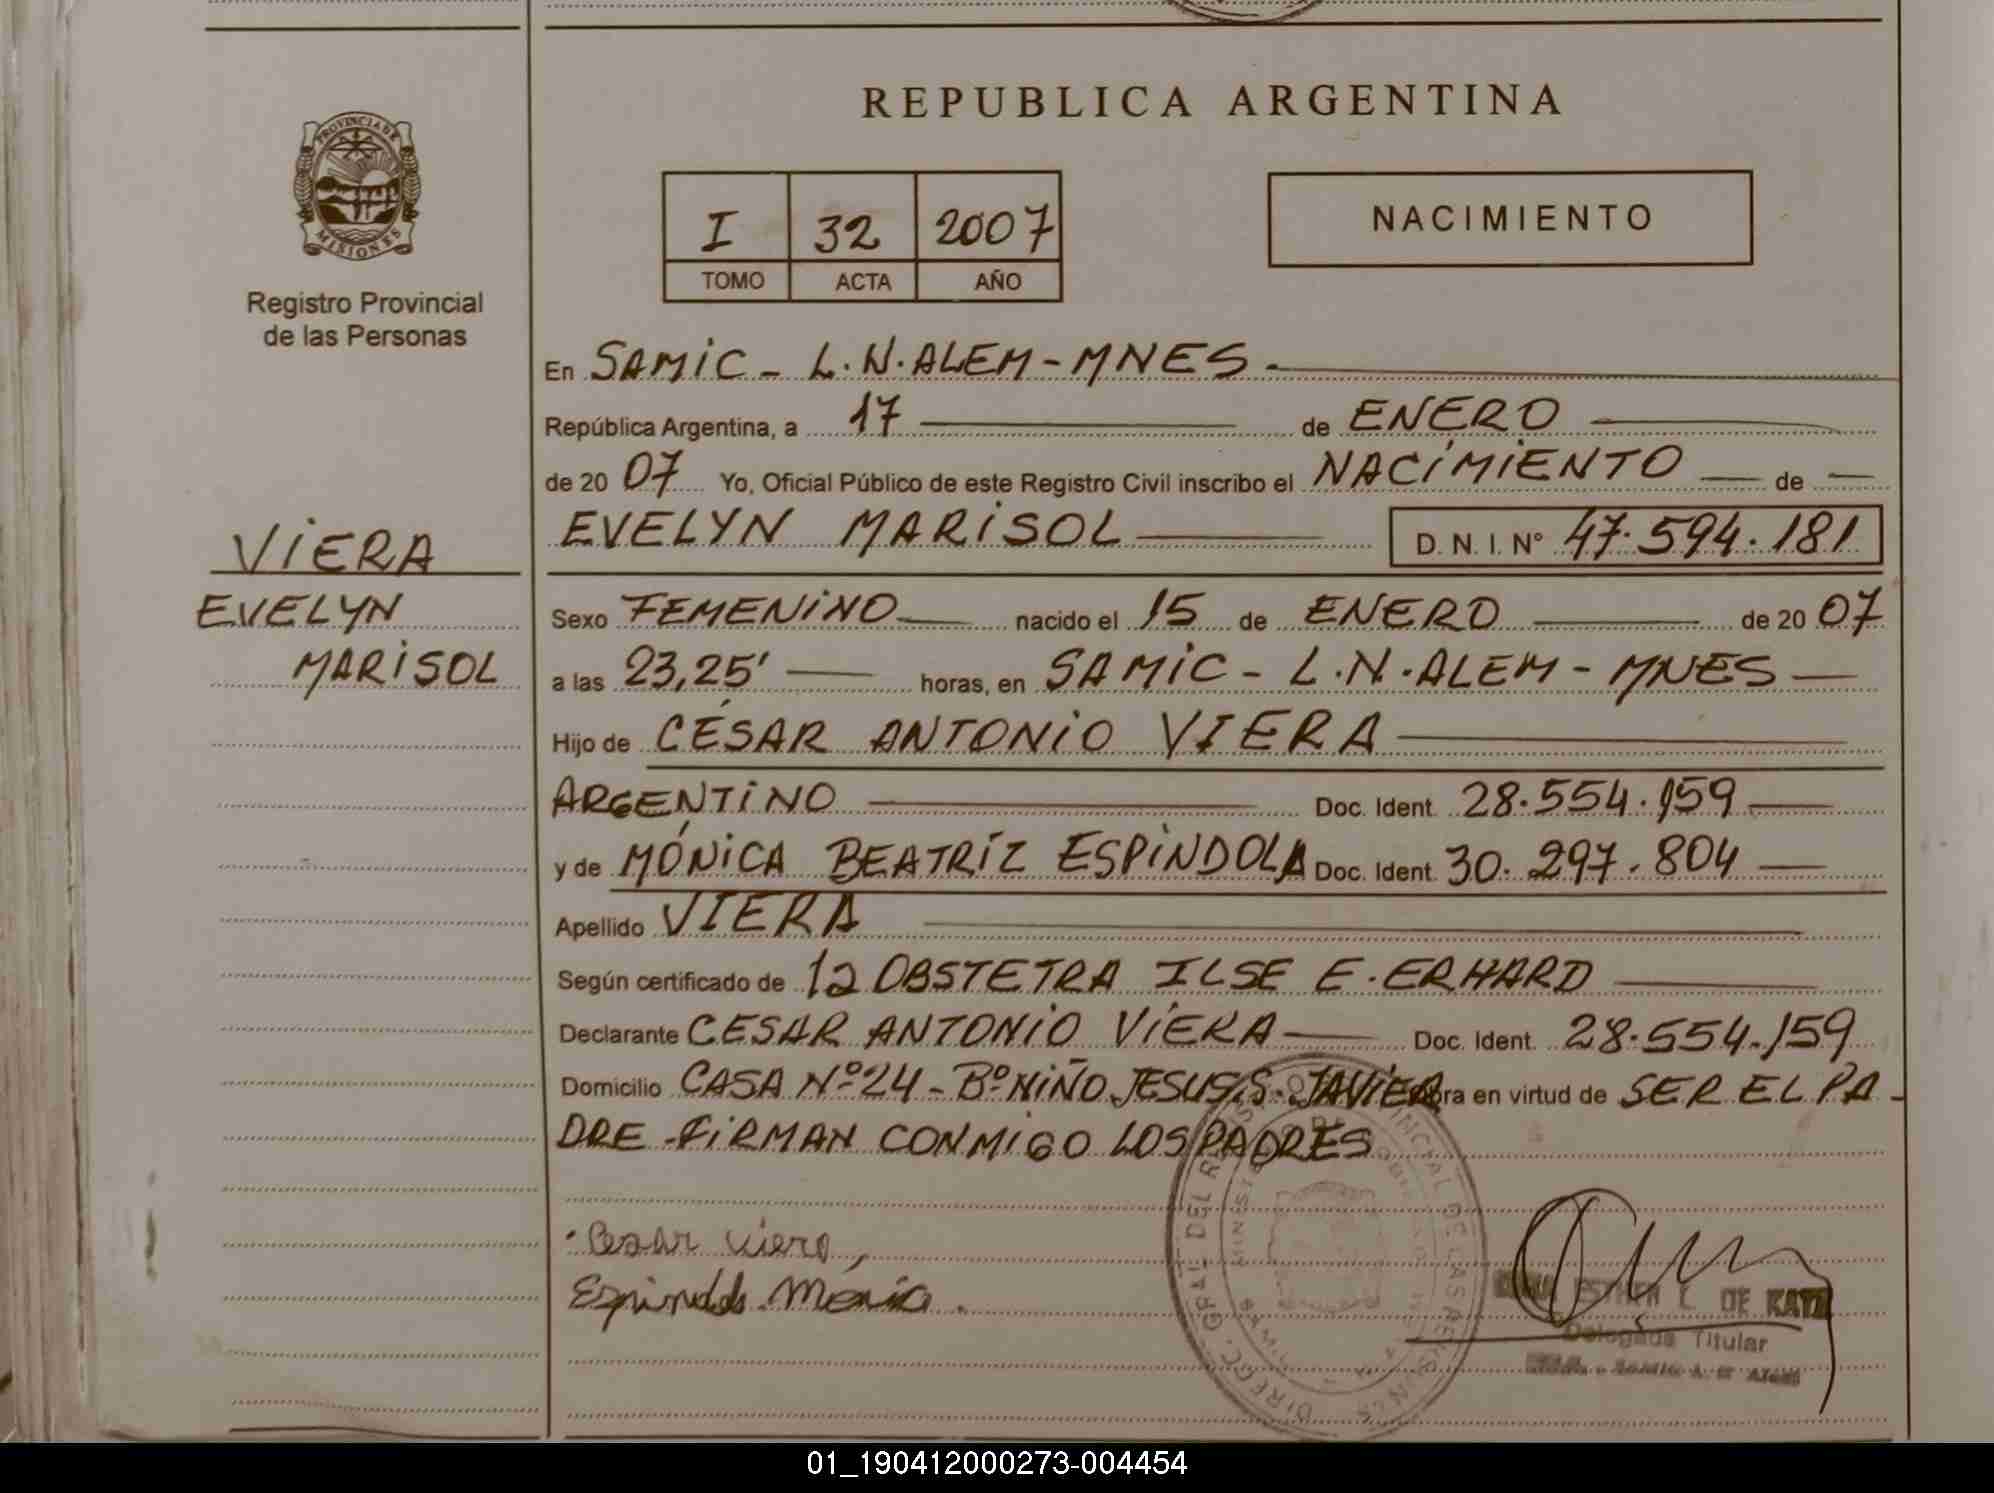 REPUBLICA ARGENTINA
PROVINCIA DE MISIONES
Registro Provincial
de las Personas
I 32 2007
TOMO ACTA AÑO
NACIMIENTO
En SAMIC - L.N.ALEM - MNES.
República Argentina, a 17 de ENERO
de 20 07 Yo, Oficial Público de este Registro Civil inscribo el NACIMIENTO de
EVELYN MARISOL D. N. I. Nº 47.594.181
VIERA
EVELYN
MARISOL
Sexo FEMENINO nacido el 15 de ENERO de 20 07
a las 23,25' horas, en SAMIC - L.N.ALEM - MNES
Hijo de CÉSAR ANTONIO VIERA
ARGENTINO Doc. Ident. 28.554.159
y de MÓNICA BEATRÍZ ESPINDOLA Doc. Ident. 30.297.804
Apellido VIERA
Según certificado de la OBSTETRA ILSE E. ERHARD
Declarante CESAR ANTONIO VIERA Doc. Ident. 28.554.159
Domicilio CASA Nº 24 - Bº NIÑO JESUS S. JAVIER Obra en virtud de SER EL PA-
DRE - FIRMAN CONMIGO LOS PADRES
Cesar Viera,
Espindola Mónica.
ESTHER L. DE KATZ
Delegada Titular
01_190412000273-004454